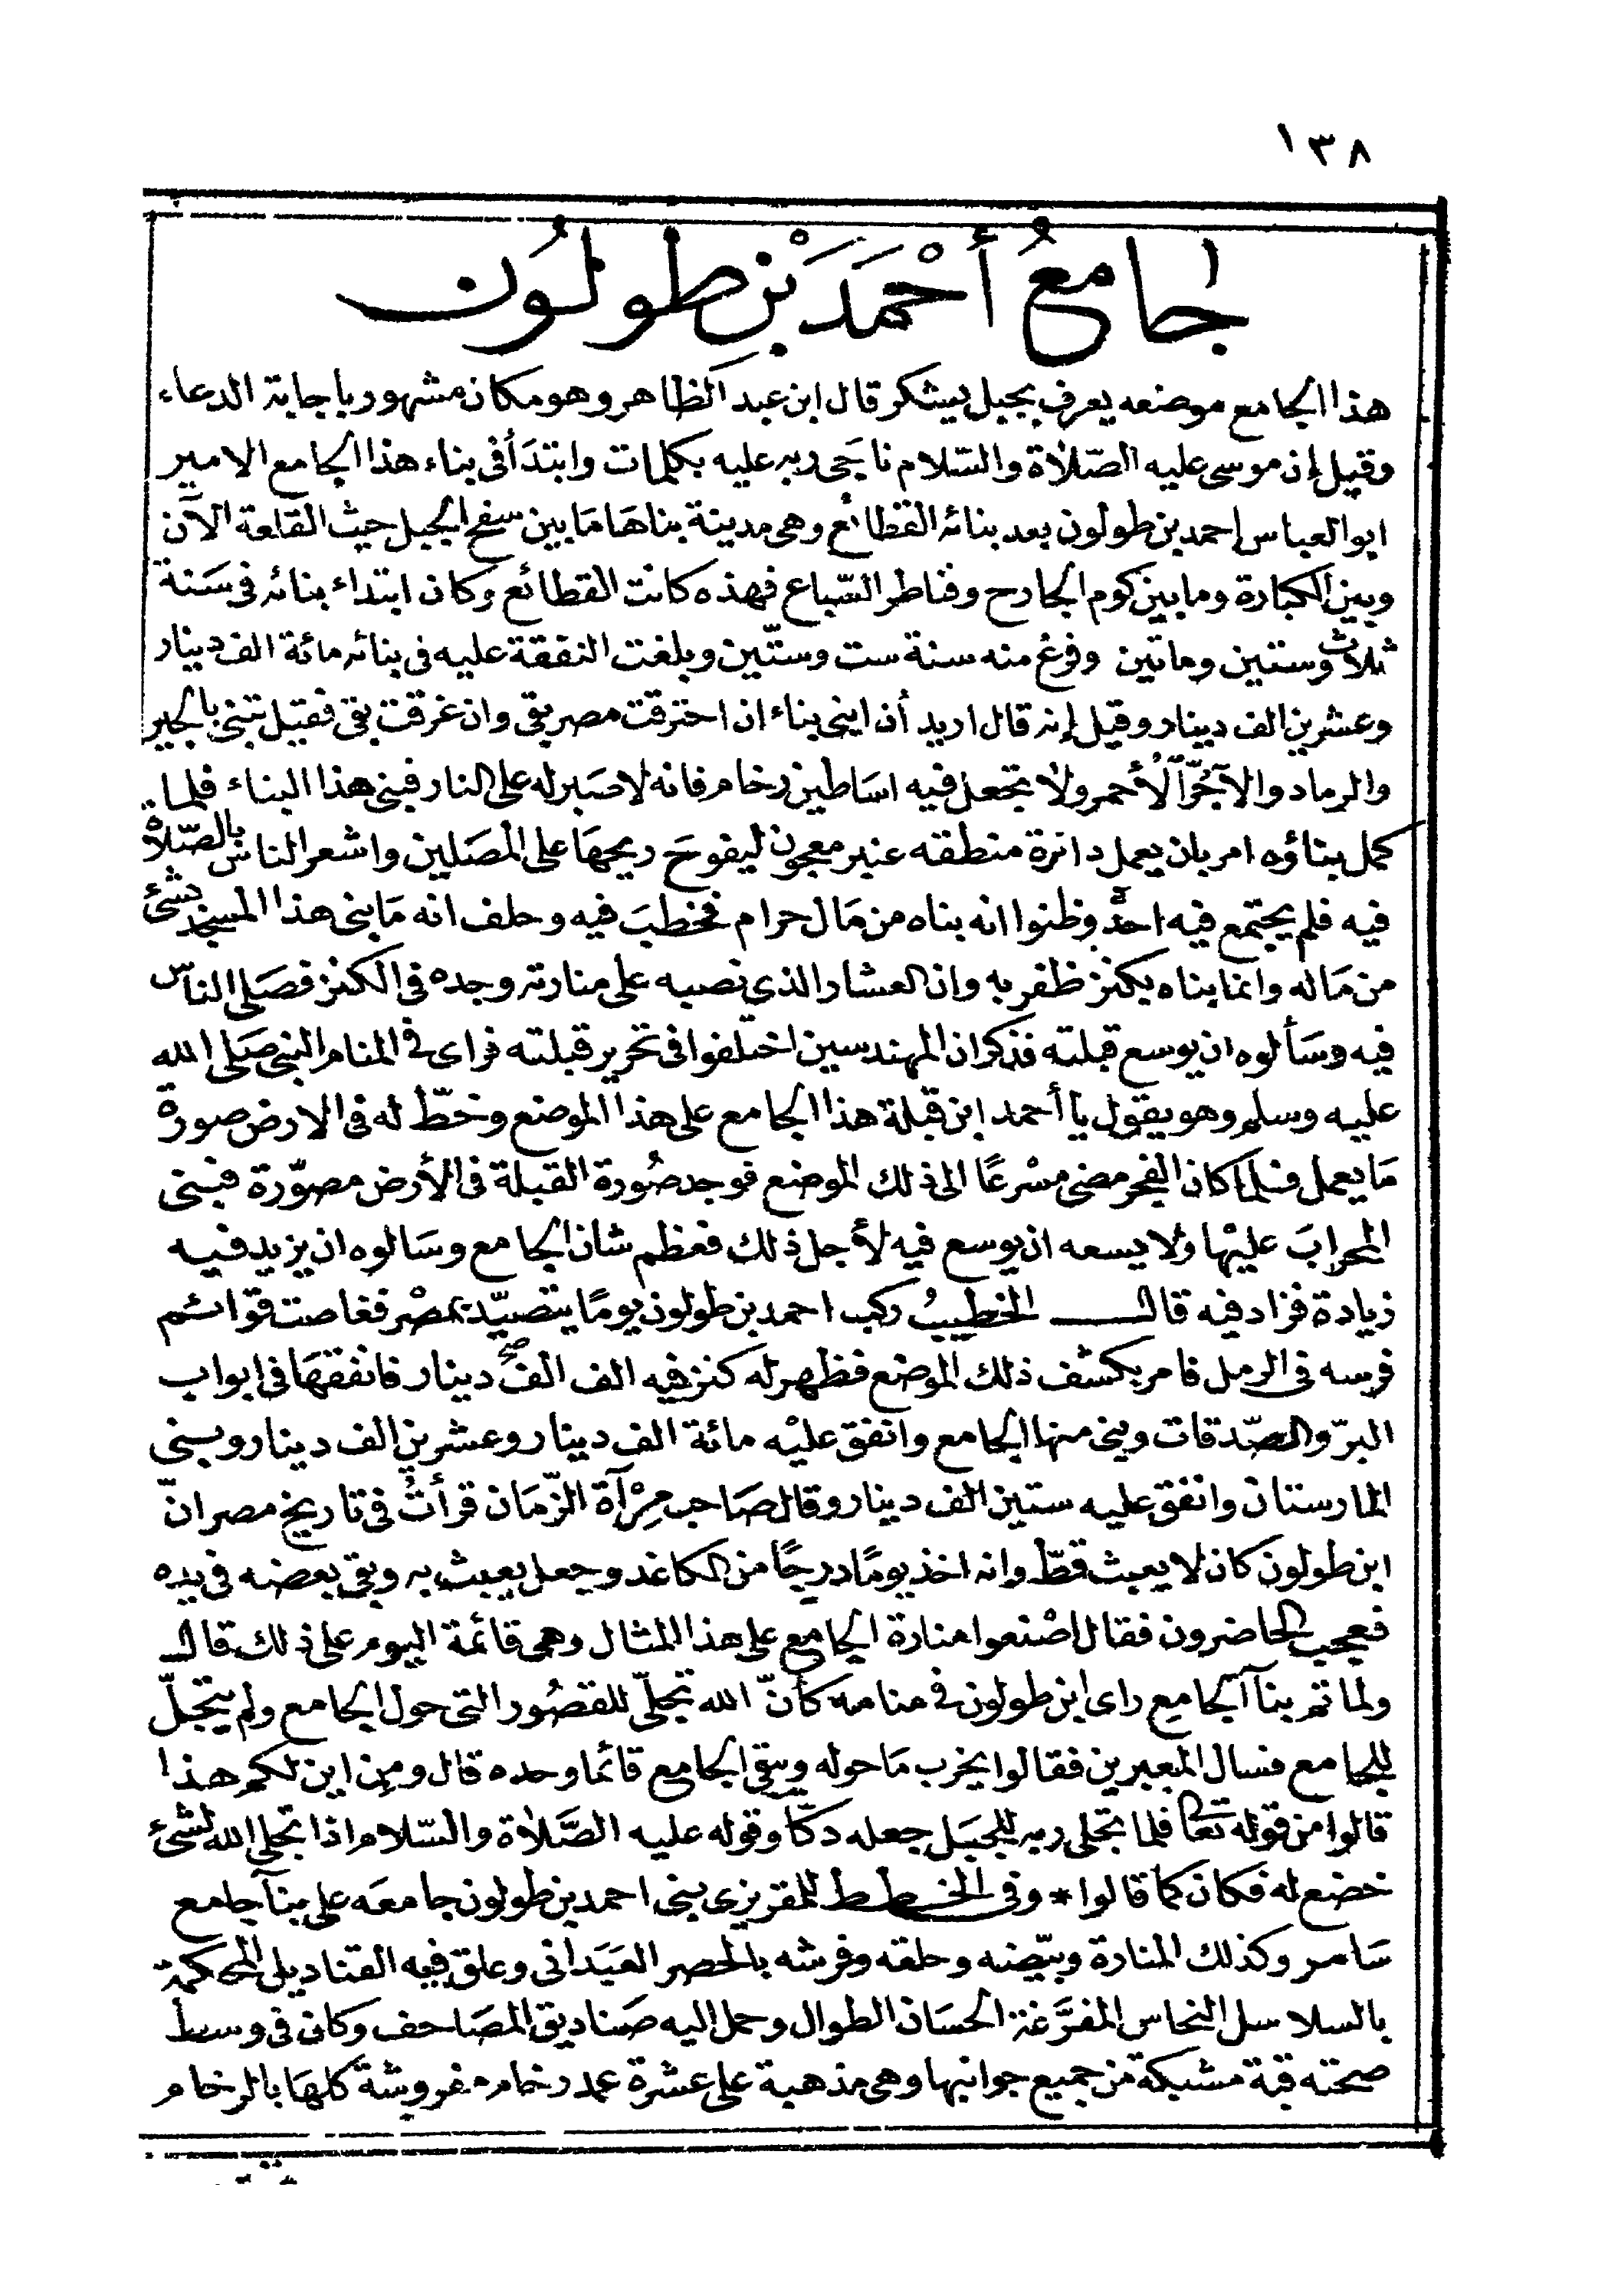 ١٣٨
جامعُ أحْمَدَ بْنِ طولُون
هذا الجامع موضعه يعرف بجبل يشكر قال ابن عبد الظاهر وهو مكان مشهور باجابة الدعاء
وقيل إن موسى عليه الصّلاة والسّلام ناجَى ربه عليه بكلمات وابتدَأ فى بناء هذا الجامع الامير
ابو العباس احمد بن طولون بعد بنائه القطائع وهى مدينة بناهَا مَا بين سفح الجبل حيث القلعة الآن
وبين الكبارة وما بين كوم الجارح وقناطر السّباع فهذه كانت القطائع وكان ابتداء بنائه فى سَنة
ثلاث وستين وماتين وفرغ منه سنة ست وستّين وبلغت النفقة عليه فى بنائه مائة الف دينار
وعشرين الف دينار وقيل إنه قال اريد أن ابنى بناء ان احترقت مصر بقى وان غرقت بقى فقيل تبنى بالجير
والرماد والآجُرّ الأحمر ولا تجعل فيه اسَاطين رخام فانه لا صَبر له على النار فبنى هذا البناء فلما
كمل بناؤه امر بان يعمل دائرة منطقه عنبر معجون ليفوحَ ريحهَا على المصَلين واشعر الناس بالصّلاة
فيه فلم يجتمع فيه احدٌ وظنوا انه بناه من مَال حرام فخطبَ فيه وحلف انه مَا بنى هذا المسجد بشئ
من مَاله وانما بناه بكنز ظفر به وان العشار الذي نصبه على منارته وجده فى الكنز فصَلى الناس
فيه وسَألوه ان يوسع قبلته فذكر ان المهندسين اختلفوا فى تحرير قبلته فراى فى المنام النبى صَلى الله
عليه وسلم وهو يقول يا أحمد ابن قبلة هذا الجامع على هذا الموضع وخطّ له فى الارض صورة
مَا يعمل فلما كان الفجر مضى مسْرعًا الى ذلك الموضع فوجد صُورة القبلة فى الأرض مصوّرة فبنى
المحرابَ عليْها ولا يسعه ان يوسع فيه لأجل ذلك فعظم شان الجامع وسَالوه ان يزيد فيه
زيادة فزاد فيه قال الخطيبُ ركب احمد بن طولون يومًا يتصيّد بمصْر فغاصت قوائم
فرسه فى الرمل فامر بكشف ذلك الموضع فظهر له كنز فيه الف الف صح دينار فانفقهَا فى ابواب
البرّ والصّدقات وبنى منها الجامع وانفق عليْه مائة الف دينار وعشرين الف دينار وبنى
المارستان وانفق عليه ستين الف دينار وقال صَاحب مِرْآة الزّمَان قرأتُ فى تاريخ مصر انّ
ابن طولون كان لا يعبث قطّ وانه اخذ يومًا درجًا من الكاغد وجعل يعبث به وبقى بعضه فى يده
فعجب الحاضرون فقال اصْنعوا منارة الجامع على هذا المثال وهى قائمة اليوم على ذلك قال
ولما تم بنآ الجامع راى ابن طولون فى منامه كأنّ الله تجلّى للقصُور التى حول الجامع ولم يتجلّ
للجامع فسال المعبرين فقالوا يخرب مَا حوله ويبقى الجامع قائما وحده قال ومن اين لكم هذا
قالوا من قوله تعا فلما تجلى ربه للجبَل جعله دكّا وقوله عليه الصَّلاة والسّلام اذا تجلى الله لشئ
خضع له فكان كما قالوا * وفى الخطط للمقريزى بنى احمد بن طولون جامعَه على بنآ جامع
سَامر وكذلك المنارة وبيّضه وحلقه وفرشه بالحصر العبَدانى وعلق فيه القناديل المحكمة
بالسلاسل النحاس المفرَّغة الحسَان الطوال وحمل اليه صَناديق المصَاحف وكان فى وسط
صحنه قبة مشبكة من جميع جوانبها وهى مذهبة على عشرة عمد رخام مفروشة كلهَا بالرخام